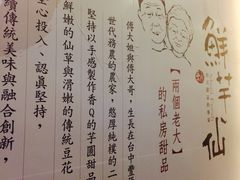 鮮芋仙
【兩個老大
的私房甜品
傅大姐與傅大哥，生長在台中豐
世代務農的農家，憨厚純樸的二
堅持以手感製作香Q的芋圓甜品
鮮嫩的仙草與滑嫩的傳統豆花
全心投入、認真堅持，
續傳統美味與融合創新，